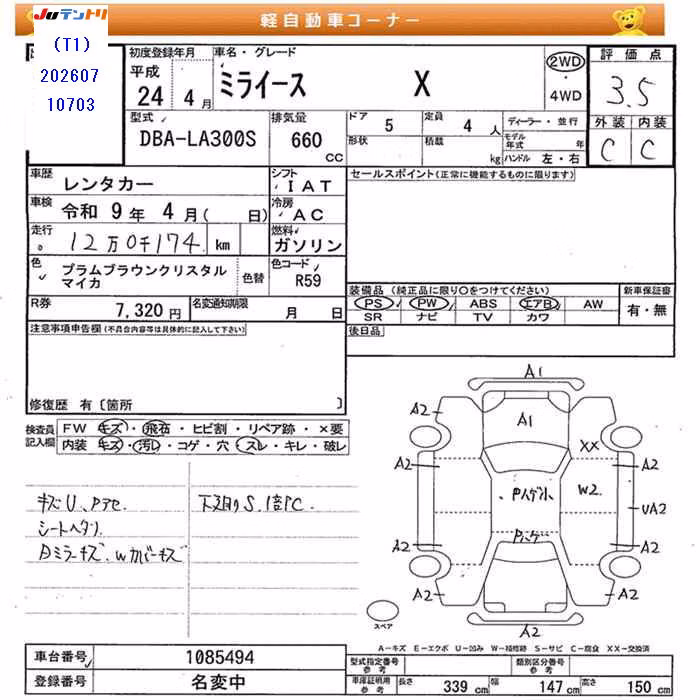 JUテントリ
軽自動車コーナー
(T1)
202607
10703
初度登録年月
平成
24 4月
車名・グレード
ミライース X
2WD
・
4WD
評価点
3.5
外装 内装
C C
型式
DBA-LA300S
排気量
660
CC
ドア 5
定員 4 人
形状
積載 kg
ディーラー・並行
モデル年式 年
ハンドル 左・右
車歴
レンタカー
シフト
IAT
車検 令和 9年 4月( 日)
冷房
AC
走行
12万0千174 km
燃料
ガソリン
色
プラムブラウンクリスタル
マイカ
色替
色コード
R59
R券 7,320円
名変通知期限 月 日
セールスポイント(正常に機能するものに限ります)
装備品(純正品に限り○をつけてください)
PS PW ABS エアB AW
SR ナビ TV カワ
新車保証書
有・無
後日品
注意事項申告欄(不具合内容等は具体的に記入して下さい)
修復歴 有〔箇所 〕
検査員
記入欄
FW キズ・飛石・ヒビ割・リペア跡・×要
内装 キズ・汚レ・コゲ・穴・スレ・キレ・破レ
キズU、Pアセ
シートヘタリ
Dミラーキズ、Wカバーキズ
下廻りS
A1
A2
A1
XX
A2
A2
A2
W2
UA2
A2
A2
A2
A2
A2
スペア
A-キズ E-エクボ U-凹み W-補修跡 S-サビ C-腐食 XX-交換済
車台番号 1085494
登録番号 名変中
型式指定番号
参考
類別区分番号
参考
車庫証明用
参考
長さ 339 cm
幅 147 cm
高さ 150 cm